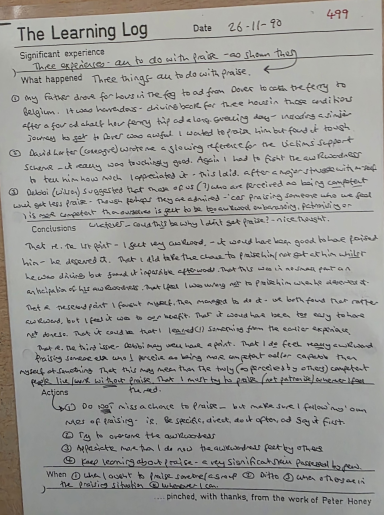 499
The Learning Log Date 26-11-90
Significant experience
Three experiences - all to do with praise - as shown then
What happened Three things - all to do with praise.
① My Father drove for hours in the fog to and from Dover to catch the ferry to
Belgium. It was hazardous - driving back for three hours in those conditions
after a four and a half hour ferry trip and a long day - a similar
journey to Dover was awful. I wanted to praise him but found it tough
② David (colleague) wrote me a glowing reference for the Victims Support
Scheme - it really was touchingly good. Again I had to fight the awkwardness
to tell him how much I appreciated it - this after a major struggle with myself
③ Debbi suggested that those of us (?) who are perceived as being competent
get less praise - though perhaps they are admired - praising someone who we feel
is more competent than ourselves is felt to be too awkward, embarrassing, patronising or
whatever - could this be why I don't get praise? - nice thought.
Conclusions
That re. the 1st point - I felt very awkward - it would have been good to have praised
him - he deserved it. That I did take the chance to praise him whilst
he was driving but found it impossible afterward. That this was in part an
anticipation of his awkwardness. That I was wrong not to praise him when he deserved it.
That re the second point I fought myself, then managed to do it - we both found that rather
awkward, but I feel it was to our benefit. That it would have been too easy to have
not done so. That it could be that I learned(!) something from the earlier experience
That re. the third issue - Debbi may very well have a point. That I do feel really awkward
praising someone who I perceive as being more competent and/or capable than
myself at something. That this may mean that the truly (or perceived by others) competent
people live/work without praise. That I must try to praise (not patronise) whenever I feel
the need.
Actions
① Do not miss a chance to praise - but make sure I follow my own
rules of praising - ie. Be specific, direct, do it often, and say it first.
② Try to overcome the awkwardness
③ Appreciate more than I do now the awkwardness felt by others
④ Keep learning about praise - a very significant skill possessed by few.
When ① When I want to praise someone/a group ② Ditto ③ When others are in
the praising situation ④ Whenever I can.
....pinched, with thanks, from the work of Peter Honey